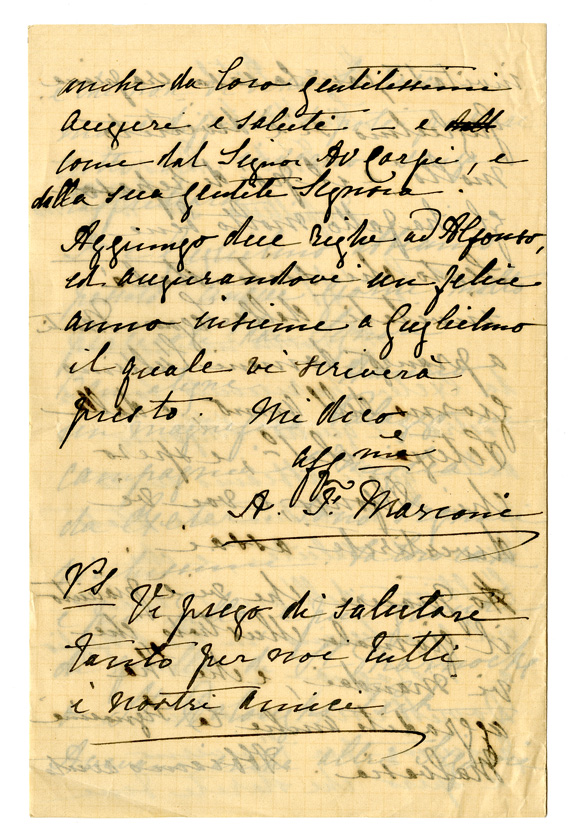 anche da loro gentilissimi
auguri e saluti – e
come dal Signor Av Carpi, e
dalla sua gentile Signora.
Aggiungo due righe ad Alfonso,
ed augurandovi un felice
anno insieme a Guglielmo
il quale vi scriverà
presto. Mi dico
aff me
A. F. Marconi
Ps Vi prego di salutare
tanto per noi tutti
i nostri amici